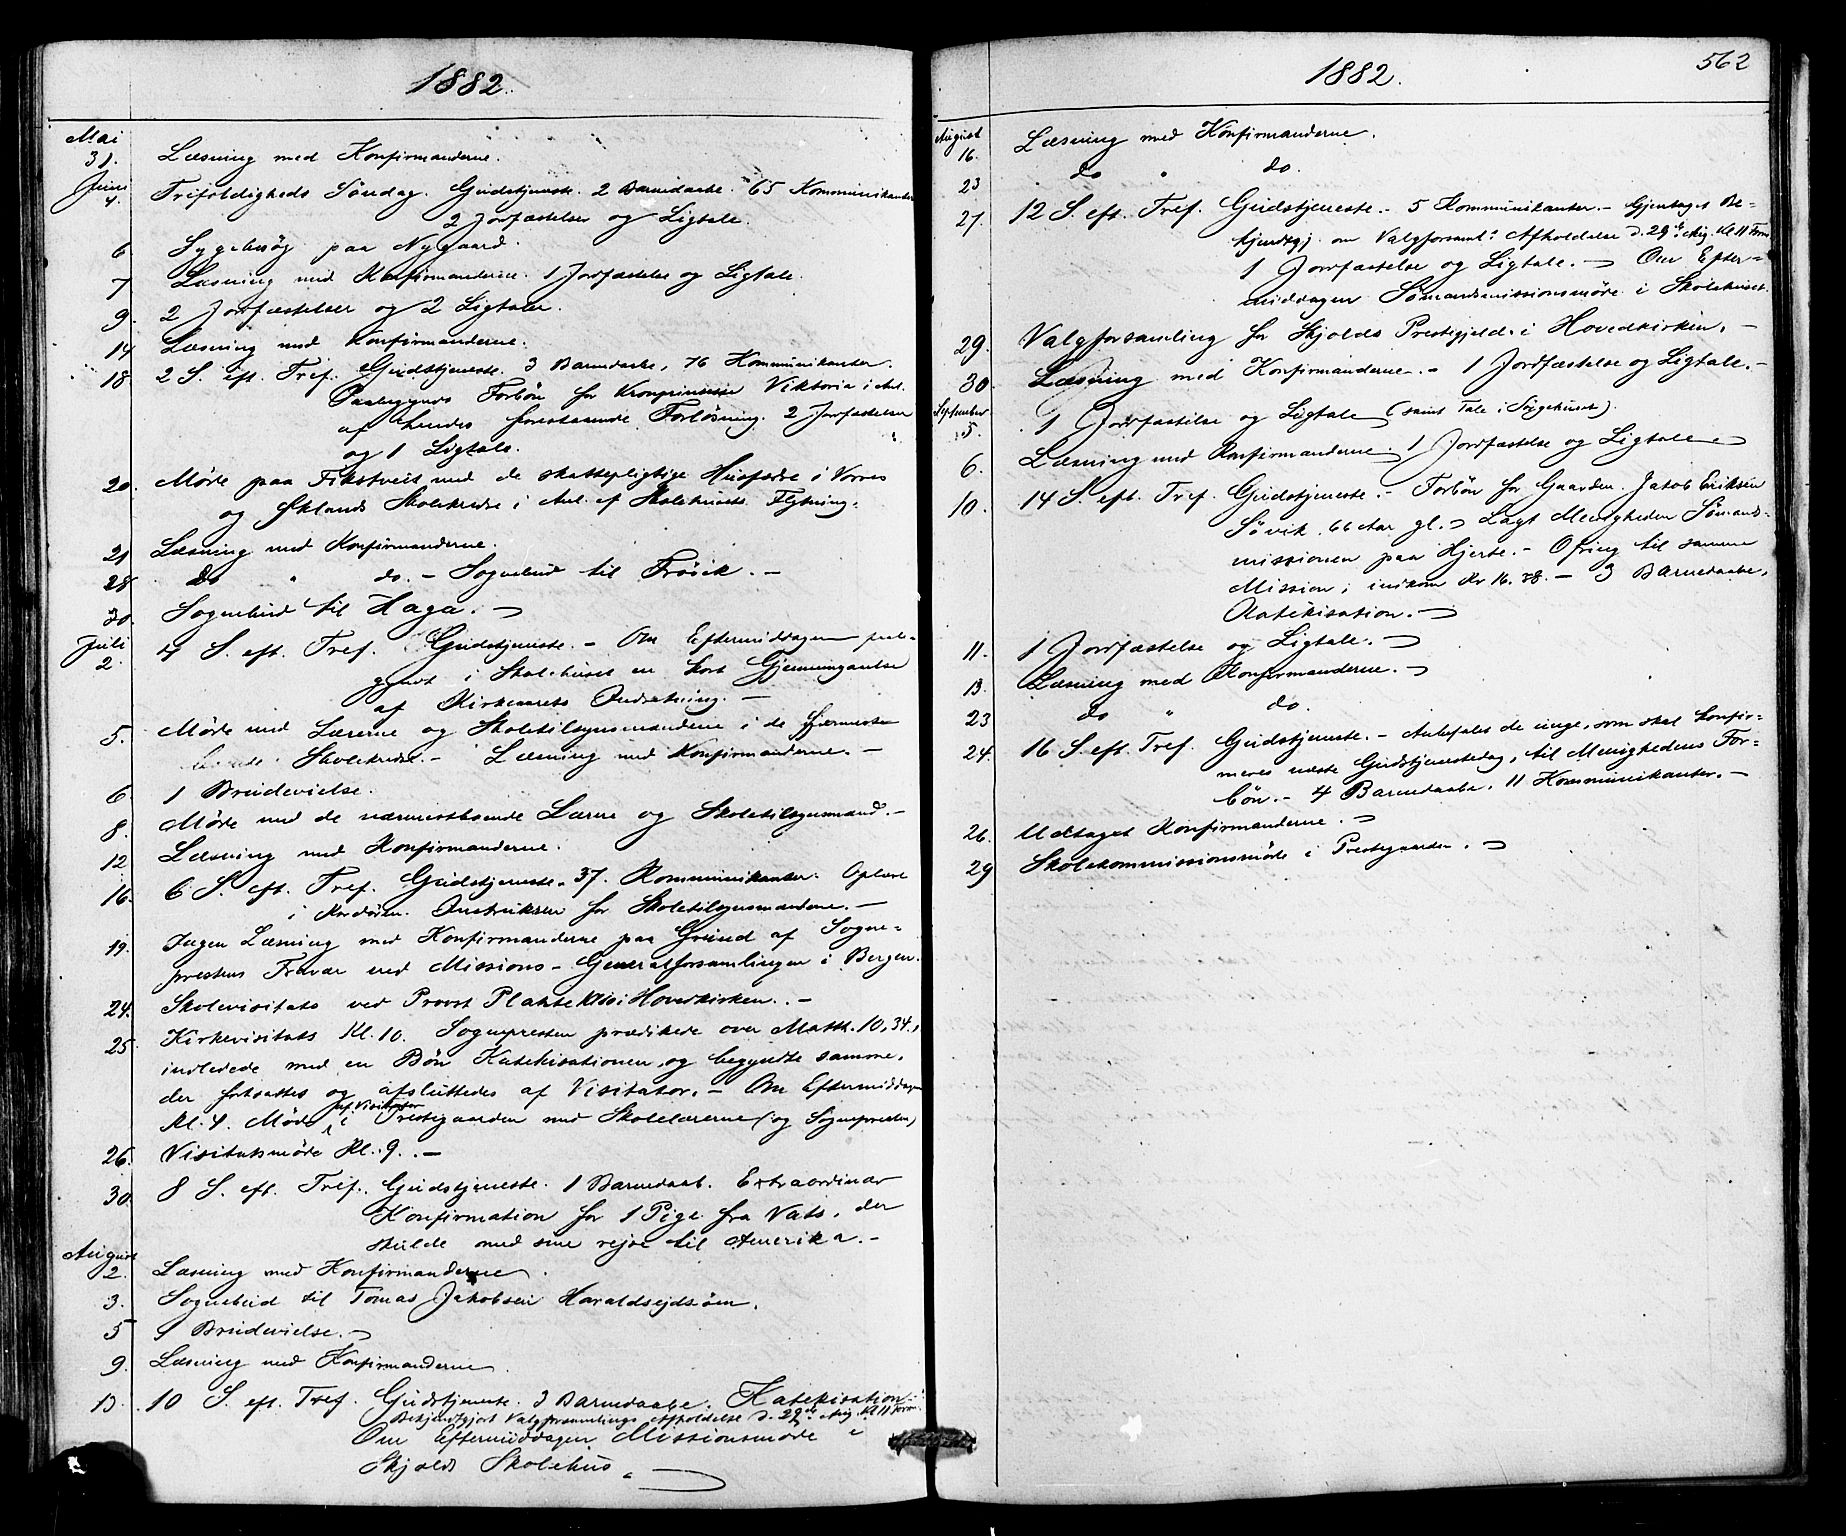 1882.
Mai
31. Læsning med Konfirmanderne.
Juni
4. Trefoldigheds Søndag. Gudstjeneste. 2 Barnedaabe. 65 Kommunikanter
2 Jordfæstelser og Ligtale.
6 Sygebesøg paa Nygaard.
7 Læsning med Konfirmanderne. 1 Jordfæstelse og Ligtale.
9. 2 Jordfæstelser og 2 Ligtaler.
14 Læsning med Konfirmanderne.
18 2 S. eft. Tref. Gudstjeneste. 3 Barnedaabe, 76 Kommunikanter.
Paabegyndt Forbøn for Kronprinsesse Viktoria i Anl.
af hendes forestaaende Forløsning. 2 Jordfæstelser
og 1 Ligtale.
20. Møde paa Fikstveit med de skattepligtige Husfædre i Vornes
og Øklands Skolekredse i Anl. af Skolehusets Flytning.
21 Læsning med Konfirmanderne.
28 do " do. - Sognebud til Frøvik. -
30. Sognebud til Haga.
Juli
2. 4 S. eft. Tref. Gudstjeneste. - Om Eftermiddagen
i Skolehuset en kort Gjennemgaaelse
af Kirkeaarets Indretning. -
5. Møde med Lærerne og Skoletilsynsmændene i de fjærmeste
Skolekredse. - Læsning med Konfirmanderne. -
6. 1 Brudevielse.
8. Møde med de nærmestboende Lærere og Skoletilsynsmænd. -
12 Læsning med Konfirmanderne.
16. 6 S. eft. Tref. Gudstjeneste. 37. Kommunikanter. Oplæst
i Kordøren Instruksen for Skoletilsynsmændene. -
19. Ingen Læsning med Konfirmanderne paa Grund af Sogne-
prestens Fravær ved Missions-Generalforsamlingen i Bergen.
24. Skolevisitats ved Provst Plahte i Hovedkirken. -
25. Kirkevisitats Kl. 10. Sognepresten prædikede over Matth. 10,34.,
indledede med en Bøn Katekisationen, og begyndte samme,
der fortsattes og afsluttedes af Visitator. - Om Eftermiddagen
af Visitator
Kl. 4. Møde i Prestegaarden med Skolelærerne (og Sognepresten)
26. Visitatsmøde Kl. 9. -
30. 8 S. eft. Tref. Gudstjeneste. 1 Barnedaab. Extraordinær
Konfirmation for 1 Pige fra Vats, der
skulde med sine rejse til Amerika. -
August
2. Læsning med Konfirmanderne.
3. Sognebud til Tomas Jakobsen Haraldsejdsøen.
5 1 Brudevielse.
9. Læsning med Konfirmanderne.
13. 10 S. eft. Tref. Gudstjeneste. 3 Barnedaabe. Katekisation.
Bekjendtgjort Valgforsamlings Afholdelse d. 29de Aug. Kl 11 Form.
Om Eftermiddagen Missionsmøde i
Skjolds Skolehus.
1882.
562
August
16. Læsning med Konfirmanderne.
23 do " do.
27. 12 S. eft. Tref. Gudstjeneste. - 5 Kommunikanter. - Gjentaget Be-
kjendtgj. om Valgforsaml.s Afholdelse d. 29de Aug. Kl 11 Form
1 Jordfæstelse og Ligtale. - Om Efter-
middagen Sømandsmissionsmøde i Skolehuset.
29. Valgforsamling for Skjolds Prestegjeld i Hovedkirken. -
30. Læsning med Konfirmanderne. - 1 Jordfæstelse og Ligtale. -
September
5. 1 Jordfæstelse og Ligtale (samt Tale i Sørgehuset).
6. Læsning med Konfirmanderne. 1 Jordfæstelse og Ligtale.
10. 14 S. eft. Tref. Gudstjeneste. - Forbøn for Gaardm. Jakob Eriksen
Søvik, 66 Aar gl. - Lagt Menigheden Sømands-
missionen paa Hjerte. - Ofring til samme
Mission; indkom Kr 16.78. - 3 Barnedaabe.
Katekisation.
11. 1 Jordfæstelse og Ligtale.
13. Læsning med Konfirmanderne.
23 do " do.
24. 16 S. eft. Tref. Gudstjeneste. - Anbefales de unge, som skal konfir-
meres næste Gudstjenestedag, til Menighedens For-
bøn. - 4 Barnedaabe. 11 Kommunikanter. -
26. Udtaget Konfirmanderne.
29 Skolekommissionsmøde i Prestegaarden.